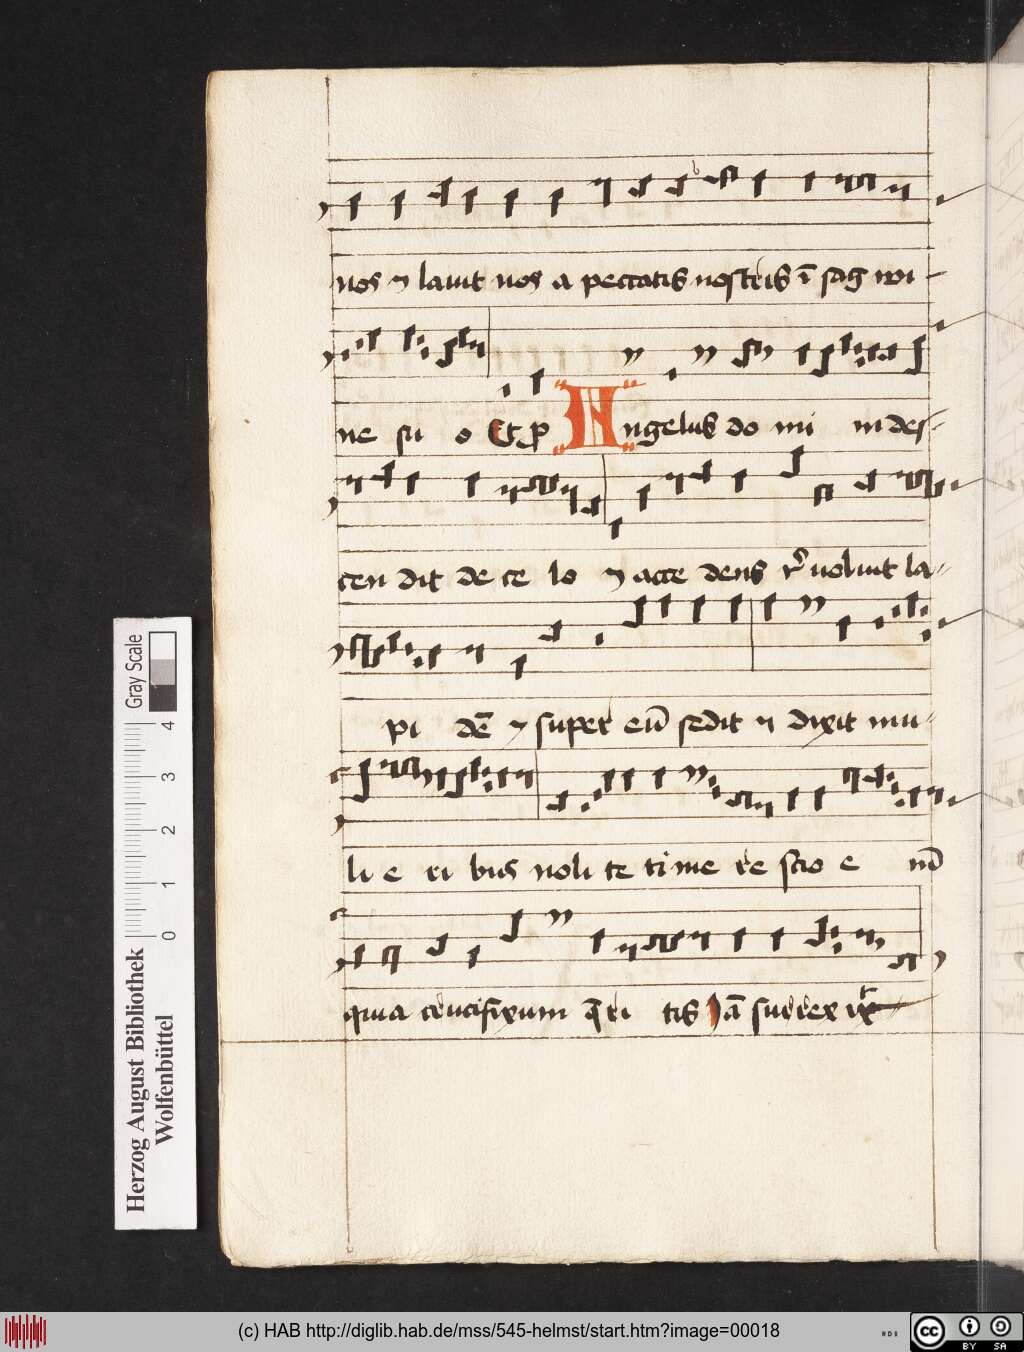 nos ⁊ lauit nos a peccatis nostris ī sāg wi-
ne su o Et p Angelus do mi ni des-
cen dit de ce lo ⁊ acce dens r̄ uoluit la-
pi dē ⁊ super eū sedit ⁊ dixit mu-
li e ri bus noli te ti me re scio e nī
quia crucifixum q̄ri tis Jā surrex
Gray Scale
0 1 2 3 4
Herzog August Bibliothek
Wolfenbüttel
(c) HAB http://diglib.hab.de/mss/545-helmst/start.htm?image=00018
cc BY SA